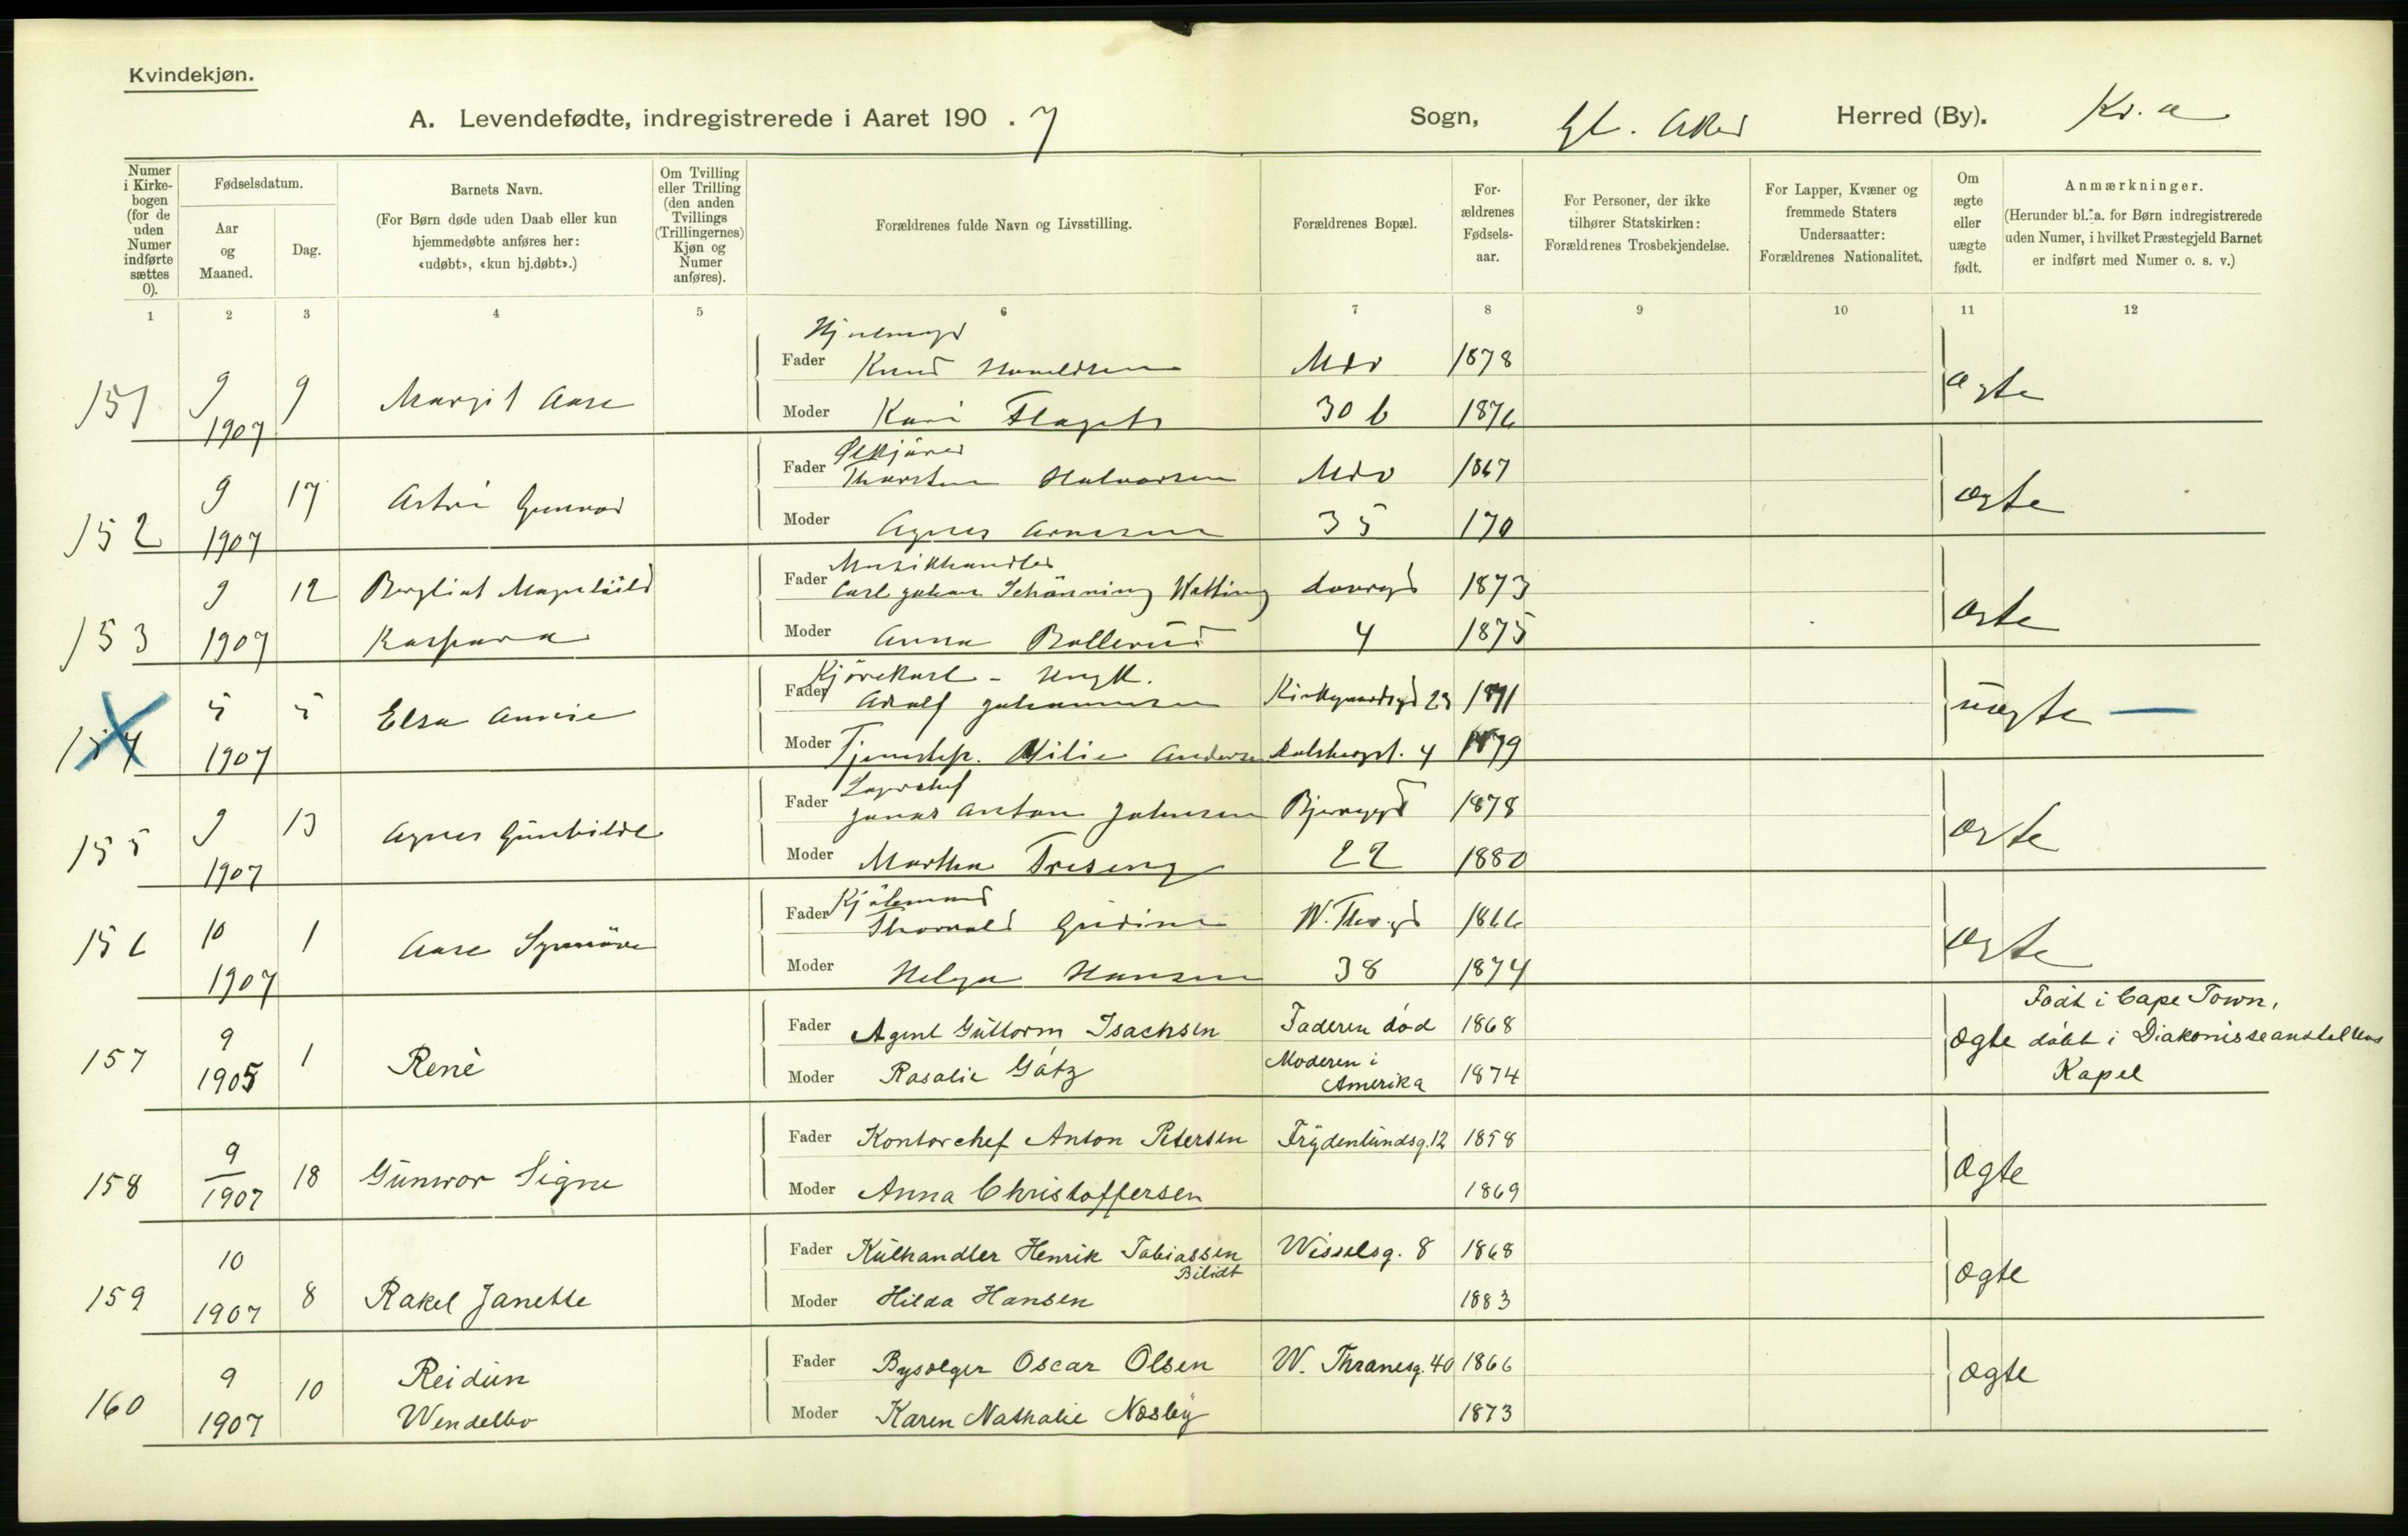 Kvindekjøn.
A. Levendefødte, indregistrerede i Aaret 190 . 7 Sogn, Gl. Aker Herred (By). Kr. a
Numer i Kirkebogen (for de uden Numer indførte sættes 0).
Fødselsdatum.
Aar og Maaned.
Dag.
Barnets Navn.
(For Børn døde uden Daab eller kun hjemmedøbte anføres her: «udøbt», «kun hj.døbt».)
Om Tvilling eller Trilling (den anden Tvillings (Trillingernes) Kjøn og Numer anføres).
Forældrenes fulde Navn og Livsstilling.
Forældrenes Bopæl.
Forældrenes Fødselsaar.
For Personer, der ikke tilhører Statskirken: Forældrenes Trosbekjendelse.
For Lapper, Kvæner og fremmede Staters Undersaatter: Forældrenes Nationalitet.
Om ægte eller uægte født.
Anmærkninger.
(Herunder bl. a. for Børn indregistrerede uden Numer, i hvilket Præstegjeld Barnet er indført med Numer o. s. v.)
1 2 3 4 5 6 7 8 9 10 11 12
151 9 1907 9 Margit Aase
Fader Knud 1878
Moder Kari 30 b 1876
ægte
152 9 1907 17 Astri Gunvor
Fader Thorsten Halvorsen 1867
Moder Agnes Arnesen 35 170
ægte
153 9 1907 12 Bergliot Magnhild Kaspara
Musikhandler
Fader Carl Johan Schönning Watting 1873
Moder Anna Bollerud 4 1875
ægte
154 5 1907 5 Elsa Annie
Kjørekarl - Ungk.
Fader Adolf Johannesen Kirkegaardsgd 23 1871
Moder Tjenestep. Milie Andersen 4 1879
uægte —
155 9 1907 13 Agnes Gunhilde
Lagerchef
Fader Jonas Anton Johnsen Bjerregd 1878
Moder Martha Treseng 22 1880
ægte
156 10 1907 1 Aase Synnøve
Fader Thorvald W. Thr.gd 1866
Moder Helga Hansen 38 1874
ægte
157 9 1905 1 Renè
Fader Agent Guttorm Isachsen Faderen død 1868
Moder Rosalie Götz Moderen i Amerika 1874
ægte
Født i Cape Town,
døbt i Diakonisseanstaltens
Kapel
158 9 1907 18 Gunvor Signe
Fader Kontorchef Anton Petersen Frydenlundsg. 12 1858
Moder Anna Christoffersen 1869
ægte
159 10 1907 8 Rakel Janette
Fader Kulhandler Henrik Tobiassen Bilidt Wisselsg. 8 1868
Moder Hilda Hansen 1883
ægte
160 9 1907 10 Reidun Wendelbo
Fader Bysælger Oscar Olsen W. Thranesg. 40 1866
Moder Karen Nathalie Næsby 1873
ægte